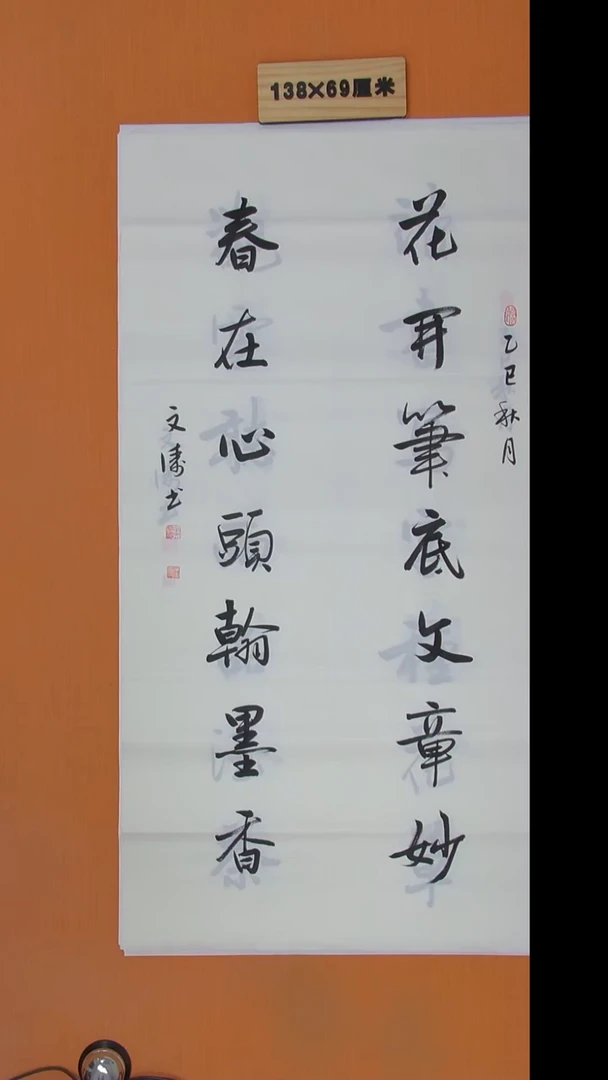 138×69厘米
乙巳秋月
花开筆底文章妙
春在心頭翰墨香
文涛书